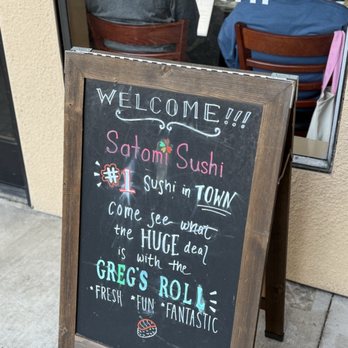 WELCOME!!!
Satomi Sushi
#1 Sushi in TOWN
Come see what
the HUGE deal
is with the
GREG'S ROLL
*FRESH *FUN *FANTASTIC*